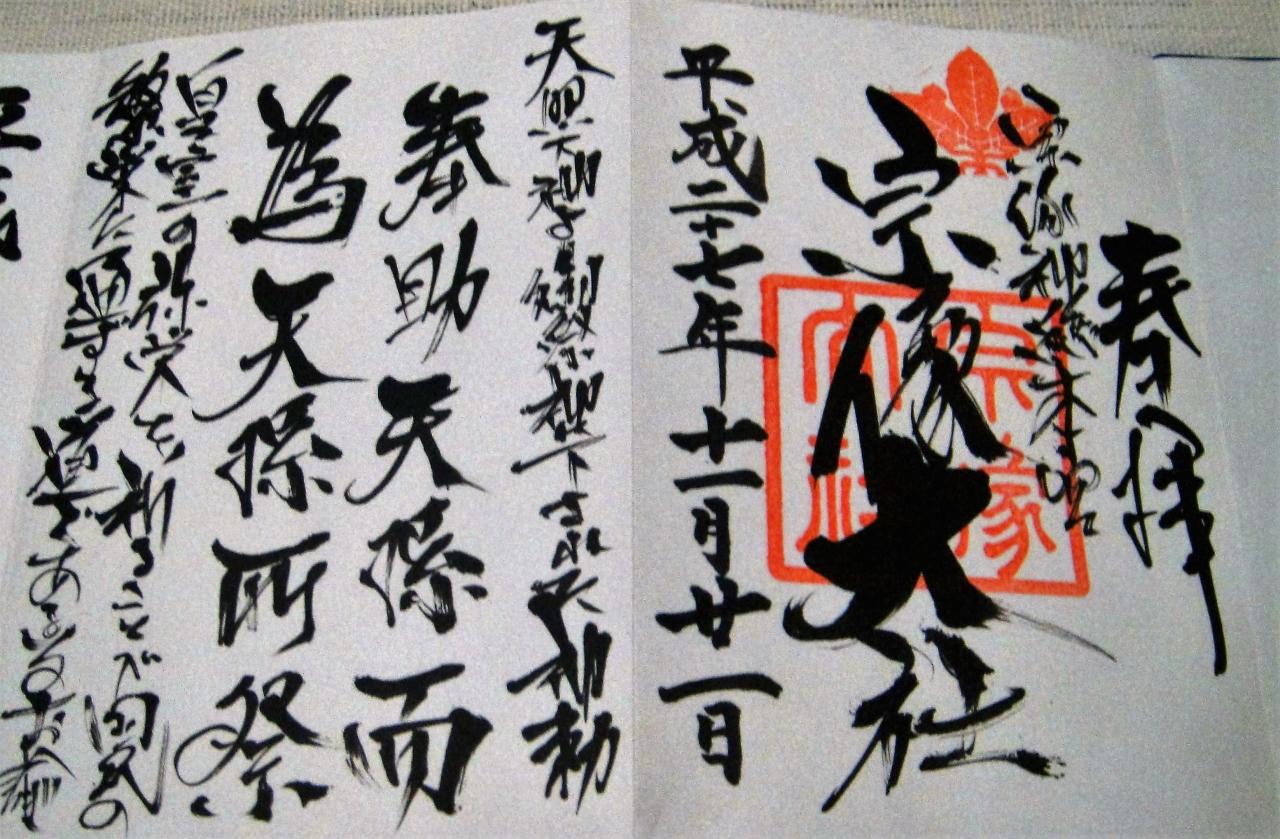 奉拝
宗像神
宗像大社
宗像大社
平成二十七年十一月廿一日
天照大神より 下された神勅
奉助天孫而
為天孫所祭
皇室の弥栄を祈ることが国民の
繁栄に通ずる道であるとの